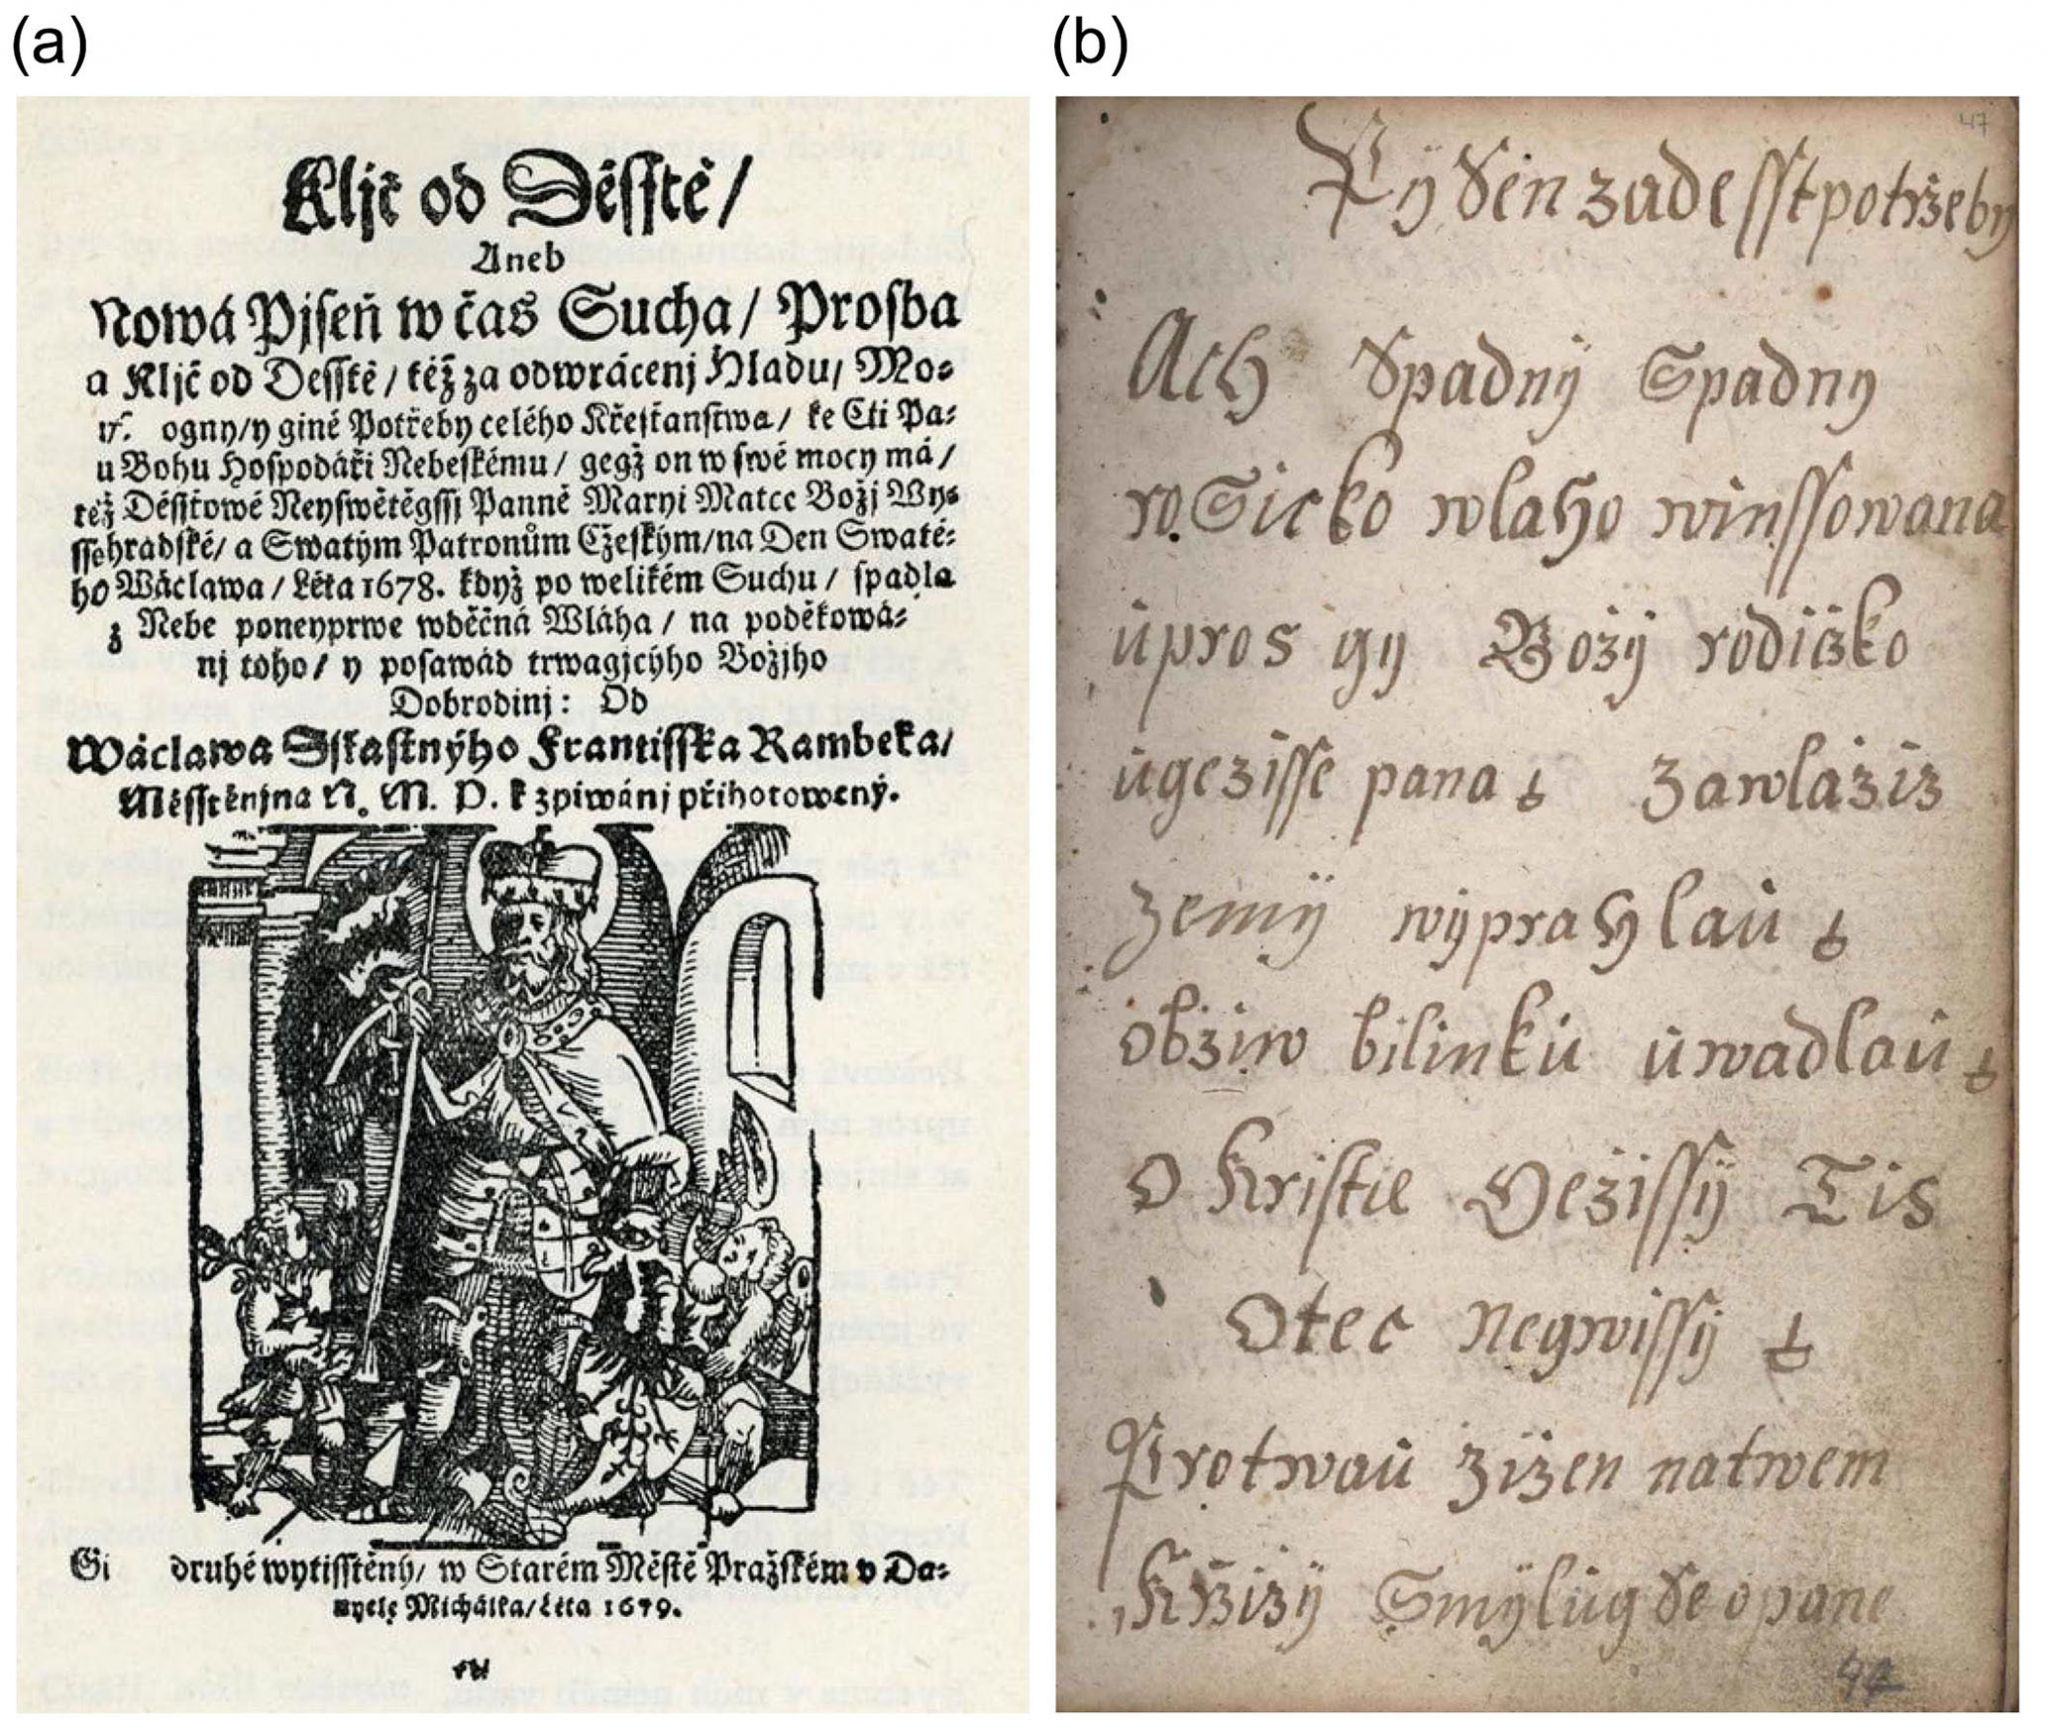 (a)
Kljč od Děsstě/
Aneb
Nowá Pjseň w čas Sucha/ Prosba
a Kljč od Desstě/ též za odwrácenj Hladu/ Mo⸗
ogny/ y giné Potřeby celého Křesťanstwa/ ke Cti Pa⸗
u Bohu Hospodáři Nebeskému/ gegž on w swé mocy má/
též Děsstowé Neyswětěgssj Panně Maryi Matce Božj Wy⸗
ssehradské/ a Swatým Patronům Cžeským/ na Den Swaté⸗
ho Wáclawa/ Léta 1678. když po welikém Suchu/ spadla
z Nebe poneyprwe wděčná Wláha/ na poděkowá⸗
nj toho/ y posawád trwagjcýho Božjho
Dobrodinj: Od
Wáclawa Sstastnýho Frantisska Rambeka/
Měsstěnjna N. M. P. k zpiwánj přihotowený.
Gi druhé wytisstěný/ w Starém Městě Pražském v Da⸗
nyele Michálka/ Léta 1679.
(b)
47
Pÿsen za desst potržeby
Ach Spadnÿ Spadny
roSicko wlaho winssowana
upros gy Božÿ rodičko
ugezisse pana & zawlažiz
zemÿ wÿprahlau &
obziw bilinku uwadlau &
O Kristie Gežissÿ Tis
Otec Negwissÿ &
Protwau žižen natwem
Kržižÿ Smÿlug Se opane